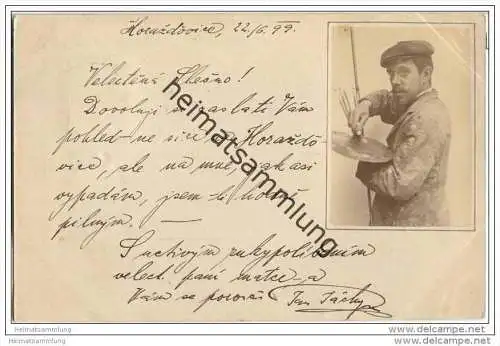 Horažďovice, 22./6. 99.
Velectěná Slečno!
Dovoluji si zaslati Vám
pohled – ne sice na Horažďo-
vice, ale na mne, jak asi
vypadám, jsem-li hodně
pilným. —
S uctivým rukypolíbením
velect. paní matce – a
Vám se poroučí Jan
heimatsammlung.de
Heimatsammlung
Heimatsammlung
http://www.heimatsammlung.de